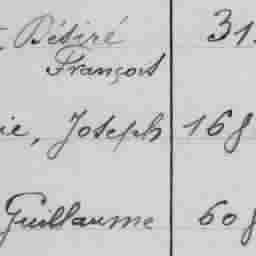 Désiré 31
François
ie, Joseph 168
Guillaume 608